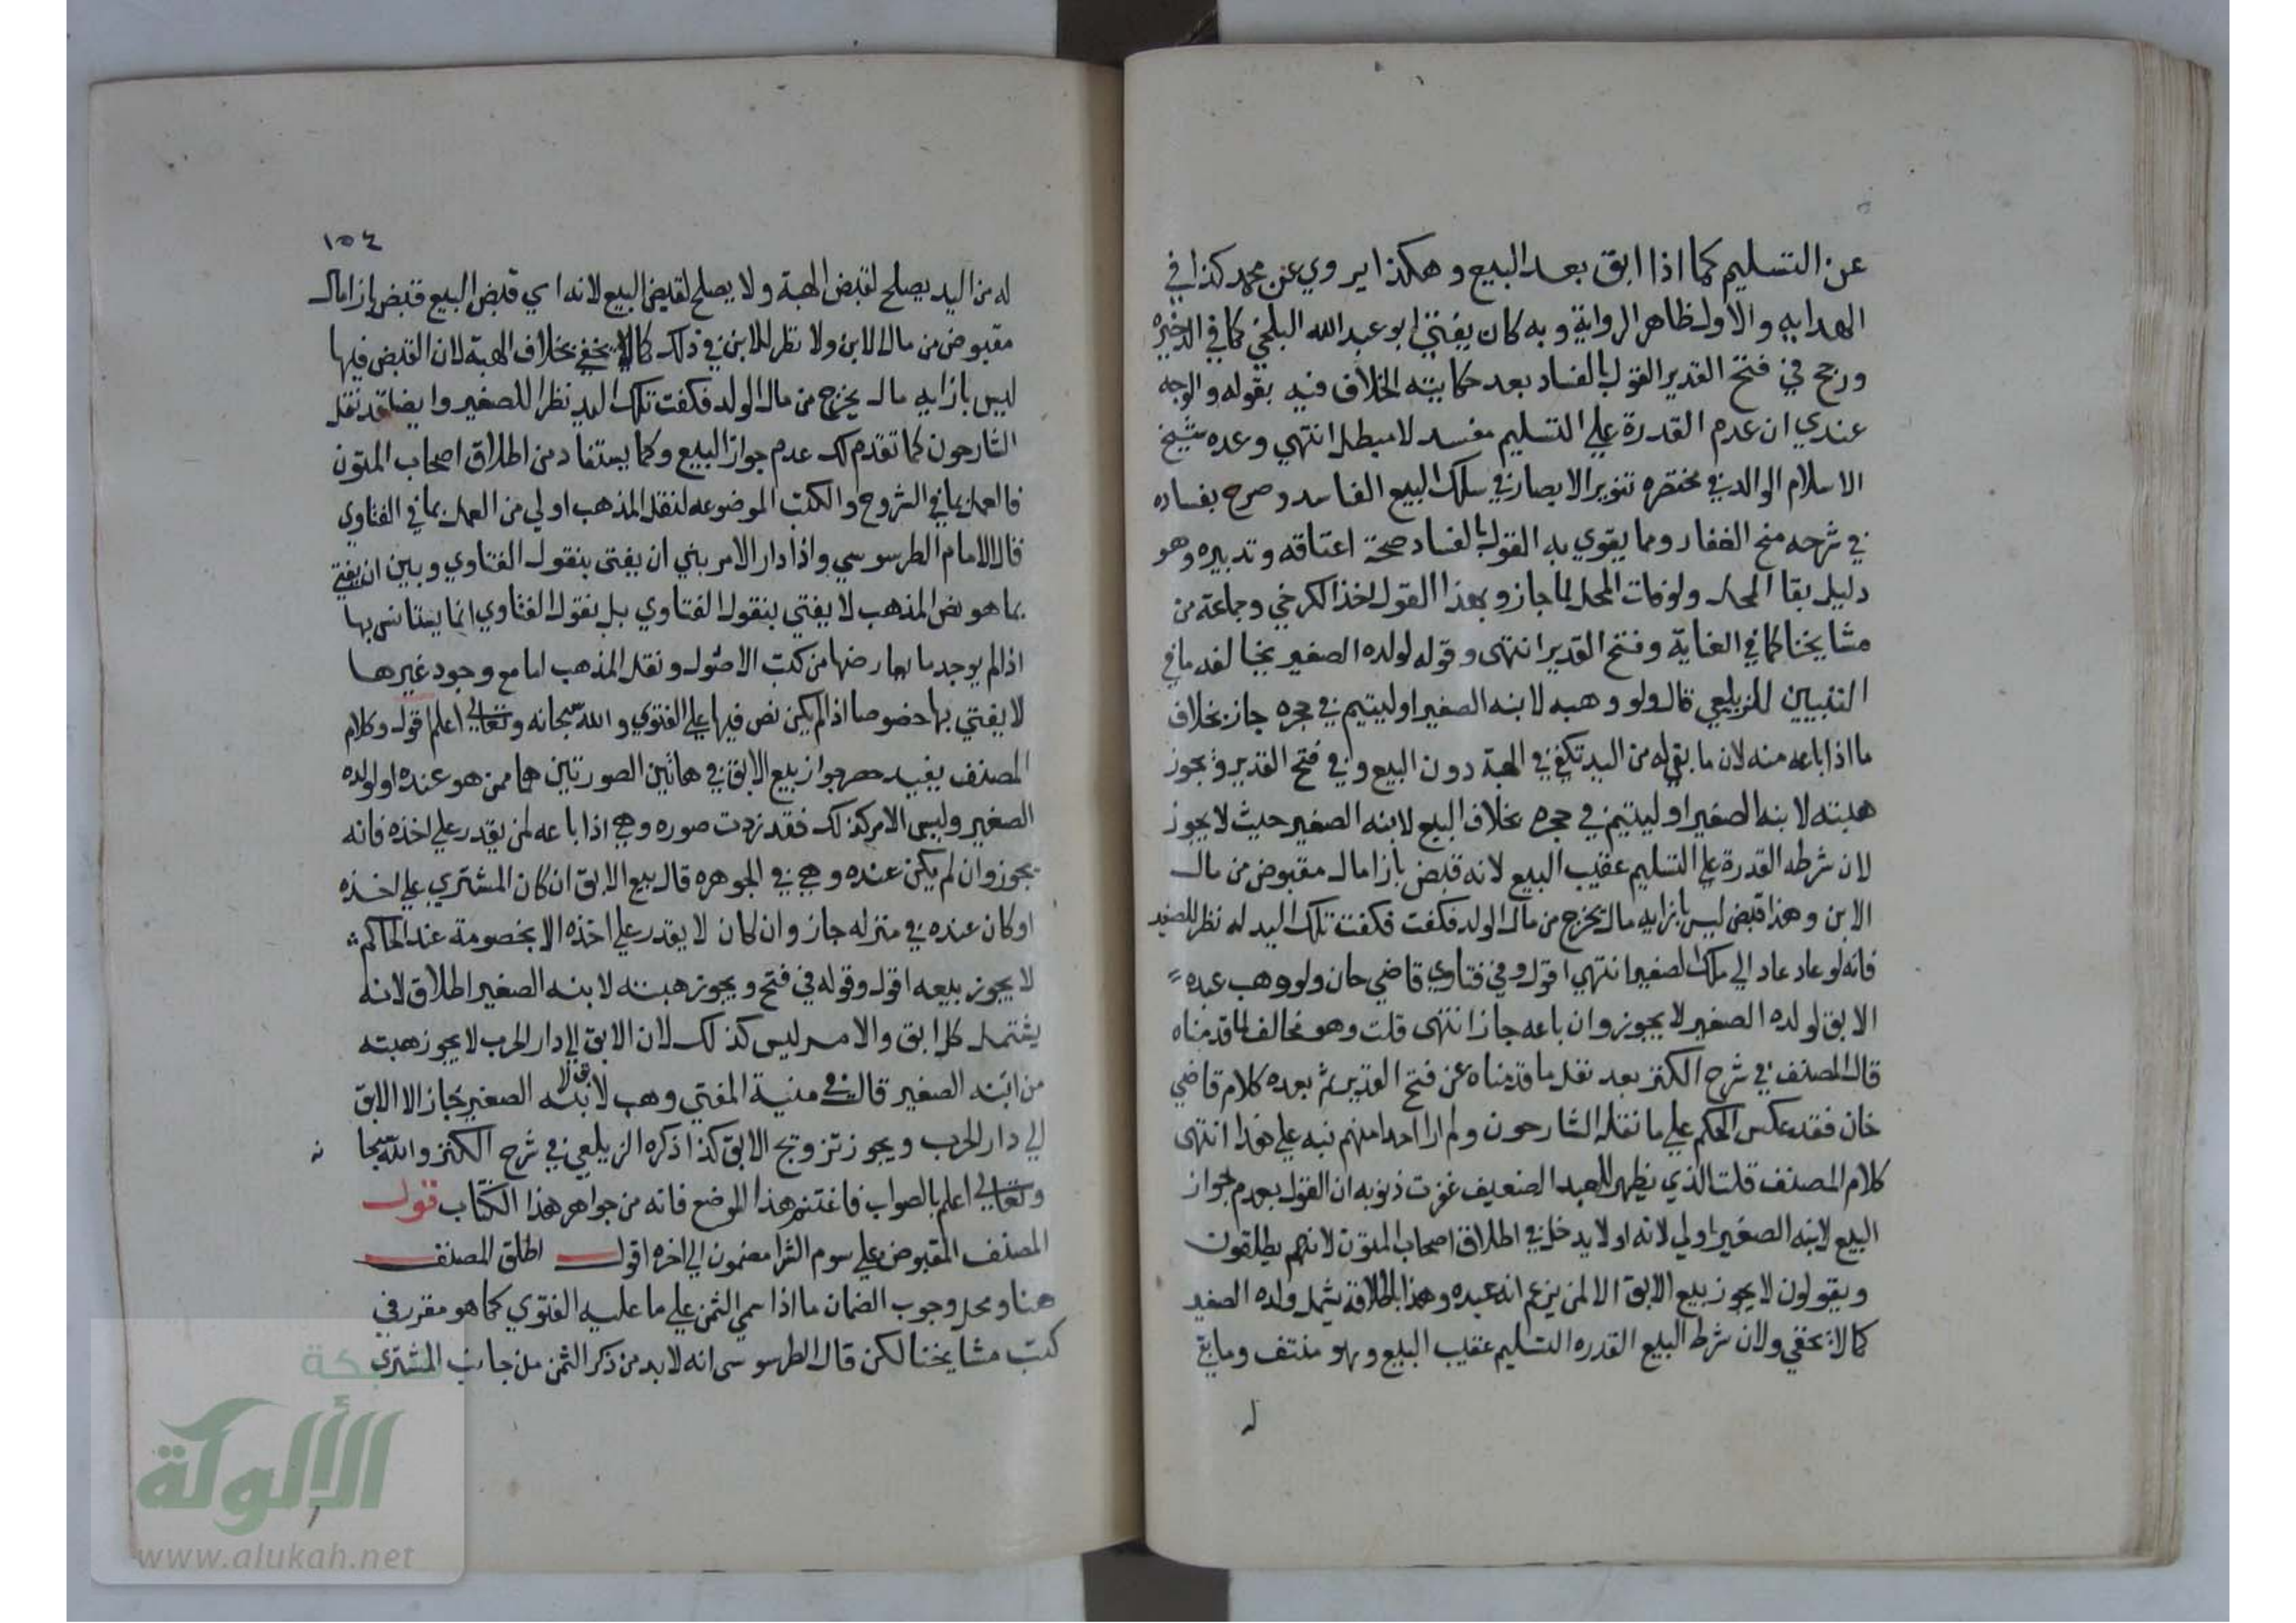 عن التسليم كما اذا ابق بعد البيع وهكذا يروي عن محمد كذا في
الهدايه والاول ظاهر الرواية وبه كان يفتي ابو عبد الله البلخي كما في الذخيره
ورجح في فتح القدير القول بالفساد بعد حكايته الخلاف فيه بقوله والوجه
عندي ان عدم القدرة علي التسليم مفسد لا مبطل انتهي وعده شيخ
الاسلام الوالد في مختصره تنوير الابصار في سلك البيع الفاسد وصرح بفساده
في شرحه منح الغفار ومما يقوي به القول بالفساد صحة اعتاقه وتدبيره وهو
دليل بقا المحل ولو فات المحل لما جاز وبهذا القول اخذ الكرخي وجماعة من
مشايخنا كما في الغاية وفتح القدير انتهى وقوله لولده الصغير يخالفه ما في
التبيين للزيلعي قال ولو وهبه لابنه الصغير او ليتيم في حجره جاز بخلاف
ما اذا باعه منه لان ما بقي له من اليد تكفي في الهبة دون البيع وفي فتح القدير ويجوز
هبته لابنه الصغير او ليتيم في حجره بخلاف البيع لابنه الصغير حيث لا يجوز
لان شرطه القدرة علي التسليم عقيب البيع لانه قبض بازا مال مقبوض من مال
الابن وهذا قبض ليس بازايه مال يخرج من مال الولد فكفت فكفت تلك اليد له نظرا للصغير
فانه لو عاد عاد الي ملك الصغير انتهي اقول وفي فتاوي قاضي خان ولو وهب عبده
الابق لولده الصغير لا يجوز وان باعه جاز انتهى قلت وهو مخالف لما قدمناه
قال المصنف في شرح الكنز بعد نقل ما قدمناه عن فتح القدير ثم بعده كلام قاضي
خان فقد عكس الحكم علي ما نقله الشارحون ولم ار احدا منهم نبه علي هذا انتهى
كلام المصنف قلت الذي يظهر للعبد الضعيف غفرت ذنوبه ان القول بعدم جواز
البيع لابنه الصغير اولي لانه اولا يدخل في اطلاق اصحاب المتون لانهم يطلقون
ويقولون لا يجوز بيع الابق الا لمن يزعم انه عبده وهذا باطلاقه يشمل ولده الصغير
كما لا يخفي ولان شرط البيع القدره التسليم عقيب البيع وهو منتف وما بقي
له
١٥٤
له من اليد يصلح لقبض الهبة ولا يصلح لقبض البيع لانه اي قبض البيع قبض بازا مال
مقبوض من مال الابن ولا نظر للابن في ذلك كما لا يخفي بخلاف الهبة لان القبض فيها
ليس بازايه مال يخرج من مال الولد فكفت تلك اليد نظرا للصغير وايضا قد نقل
الشارحون كما تقدم لك عدم جواز البيع وكما يستفاد من اطلاق اصحاب المتون
فالعمل بما في الشروح والكتب الموضوعه لنقل المذهب اولي من العمل بما في الفتاوى
قال الامام الطرسوسي واذا دار الامر بين ان يفتى بنقول الفتاوي وبين ان يفتي
بما هو نص المذهب لا يفتي بنقول الفتاوي بل نقول الفتاوي انما يستانس بها
اذا لم يوجد ما يعارضها من كتب الاصول ونقل المذهب اما مع وجود غيرها
لا يفتي بها خصوصا اذا لم يكن نص فيها علي الفتوي والله سبحانه وتعالى اعلم اقول وكلام
المصنف يفيد حصر جواز بيع الابق في هاتين الصورتين هما ممن هو عنده او لولده
الصغير وليس الامر كذلك فقد زدت صوره وهي اذا باعه لمن يقدر علي اخذه فانه
يجوز وان لم يكن عنده وهي في الجوهره قال بيع الابق ان كان المشتري علي اخذه
او كان عنده في منزله جاز وان كان لا يقدر علي اخذه الا بخصومة عند الحاكم
لا يجوز بيعه اقول وقوله في فتح ويجوز هبته لابنه الصغير اطلاق لانه
يشتمل كل ابق والامر ليس كذلك لان الابق الي دار الحرب لا يجوز هبته
من ابنه الصغير قال في منية المفتي وهب لابنه الصغير جاز الا الابق
الي دار الحرب ويجوز تزويج الابق كذا ذكره الزيلعي في شرح الكنز والله سبحا نه
وتعالى اعلم بالصواب فاغتنم هذا الموضع فانه من جواهر هذا الكتاب قول
المصنف المقبوض علي سوم الشرا مضمون الي اخره اقول اطلق المصنف
هنا ومحل وجوب الضمان ما اذا سمي الثمن علي ما عليه الفتوي كما هو مقرر في
كتب مشايخنا لكن قال الطرسوسي انه لا بد من ذكر الثمن من جانب المشتري
شبكة
الألوكة
www.alukah.net